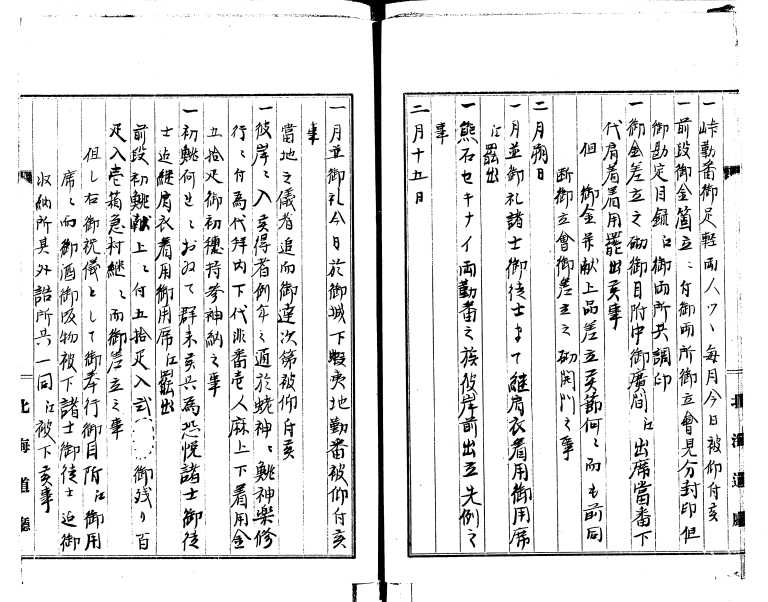 一峠勤番御足軽両人ツヽ毎月今日被仰付亥
一前段御金箇立ニ付御両所御立會見分封印但
御勘定目録江御両所共調印
一御金差立之砌御目附中御廣間江出席當番下
代肩着着用罷出亥事
但御金并献上品差立亥節何ニ而も前同
断御立會御差立之砌開門之事
二月朔日
一月並御礼諸士御徒士まて継肩衣着用御用席
江罷出
一熊石セキナイ両勤番之族彼岸前出立先例之
事
二月十五日
一月並御礼今日於御城下蝦夷地勤番被仰付亥
事
當地之儀者追而御達次第被仰付亥
一彼岸ニ入亥得者例年之通於姥神ニ鯡神楽修
行ニ付為代拜内下代非番壱人麻上下着用金
五拾疋御初穂持参神納之事
一初鯡何せニおゐて群来亥共為恐悦諸士御徒
士迄継肩衣着用御用席江罷出
前段初鯡献上ニ付五拾疋入弐 御残り百
疋入壱箱急村継ニ而御差立之事
但し右御祝儀として御奉行御目附江御用
席ニ而御酒御吸物被下諸士御徒士迄御
収納所其外詰所共一同江被下亥事
北海道廳
北海道廳